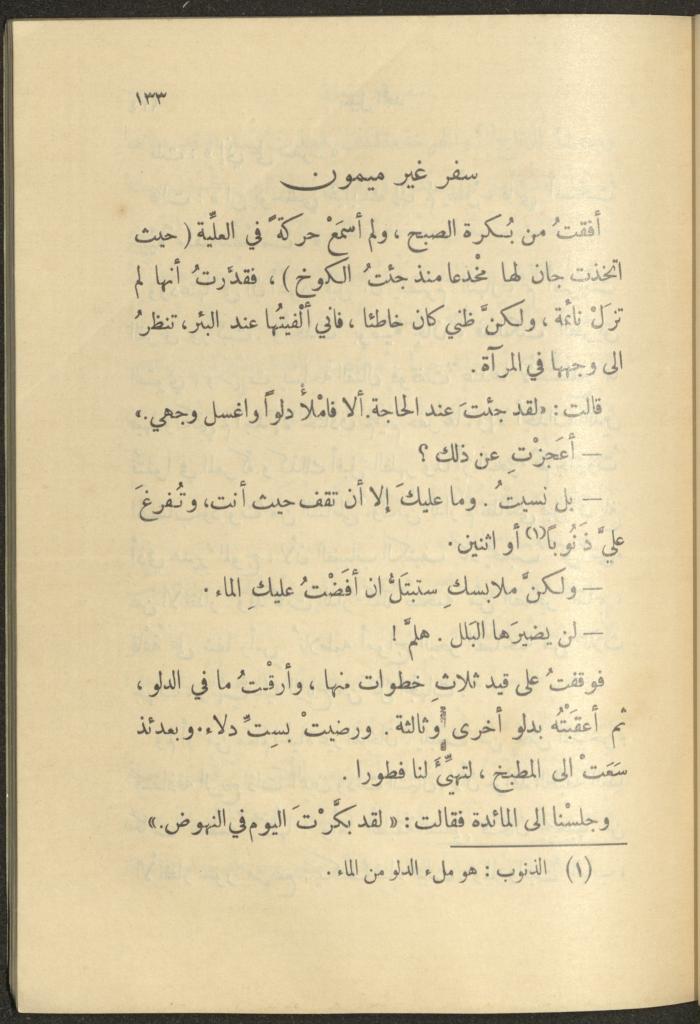 ١٣٣
سفر غير ميمون
أفقتُ من بُكرة الصبح ، ولم أسمَعْ حركةً في العلِّية ( حيث
اتخذت جان لها مخْدعا منذ جئتُ الكوخ ) ، فقدَّرتُ أنها لم
تزَلْ نائمة ، ولكنَّ ظني كان خاطئا ، فاني ألْفيتُها عند البئر، تنظرُ
الى وجهها في المرآة .
قالت : «لقد جئتَ عند الحاجة. ألا فامْلأْ دلواً واغسل وجهي.»
— أعَجزْتِ عن ذلك ؟
— بل نسيتُ . وما عليكَ إلا أن تقف حيث أنت، وتُفرغَ
عليَّ ذَنُوباً(١) أو اثنين .
— ولكنَّ ملابسكِ ستبتَلُّ ان أفَضْتُ عليكِ الماء .
— لن يضيرَها البَلل . هلمَّ !
فوقفتُ على قيد ثلاثِ خطوات منها ، وأرقْتُ ما في الدلو ،
ثم أعقَبْتُه بدلو أخرى وثالثة . ورضيتْ بستِّ دلاء. وبعدئذ
سَعَتْ الى المطبخ ، لتهيِّئَ لنا فطورا .
وجلسْنا الى المائدة فقالت : « لقد بكَّرْتَ اليوم في النهوض .»
(١) الذنوب : هو ملء الدلو من الماء .